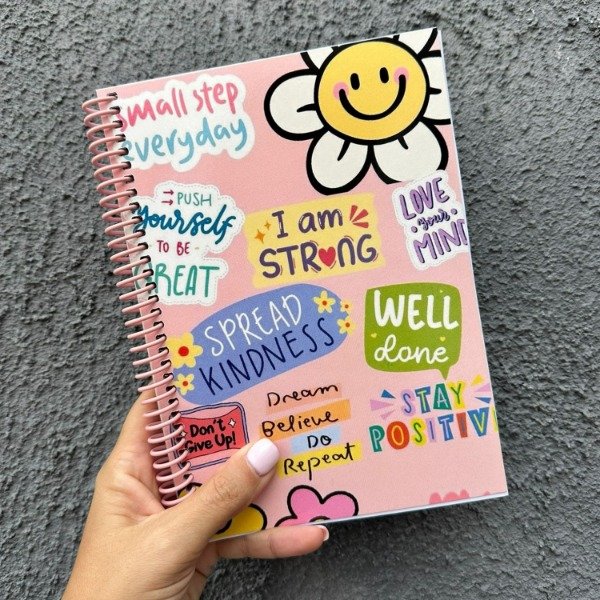 small step
everyday
PUSH
Yourself
TO BE
GREAT
I am
STRONG
LOVE
your
MIND
SPREAD
KINDNESS
WELL
done
Don't
Give Up!
Dream
Believe
Do
Repeat
STAY
POSITIVE